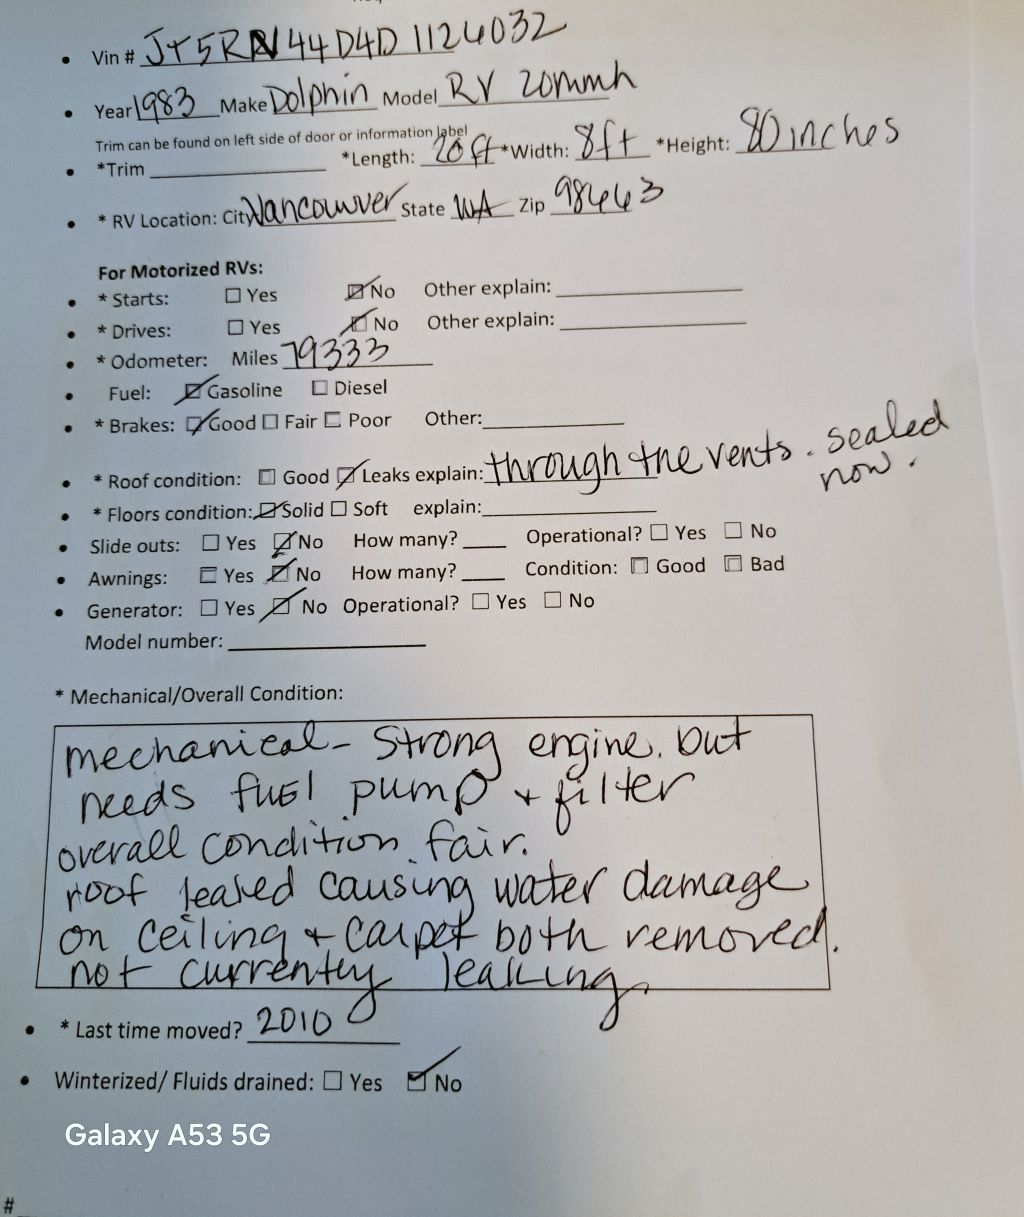 • Vin # JT5RN44D4D1124032
• Year 1983 Make Dolphin Model RV 20mmh
Trim can be found on left side of door or information label
• *Trim ____ *Length: 20ft *Width: 8ft *Height: 80 inches
• * RV Location: City Vancouver State WA Zip 98663
For Motorized RVs:
• * Starts: ☐ Yes ☑ No Other explain: ____
• * Drives: ☐ Yes ☑ No Other explain: ____
• * Odometer: Miles 79333
• Fuel: ☑ Gasoline ☐ Diesel
• * Brakes: ☑ Good ☐ Fair ☐ Poor Other: ____
• * Roof condition: ☐ Good ☑ Leaks explain: through the vents. sealed
now.
• * Floors condition: ☑ Solid ☐ Soft explain: ____
• Slide outs: ☐ Yes ☑ No How many? ____ Operational? ☐ Yes ☐ No
• Awnings: ☐ Yes ☑ No How many? ____ Condition: ☐ Good ☐ Bad
• Generator: ☐ Yes ☑ No Operational? ☐ Yes ☐ No
Model number: ____
* Mechanical/Overall Condition:
mechanical - Strong engine, but
needs fuel pump + filter
overall condition fair.
roof leaked causing water damage
on ceiling + carpet both removed.
not currently leaking.
• * Last time moved? 2010
• Winterized/ Fluids drained: ☐ Yes ☑ No
Galaxy A53 5G
#